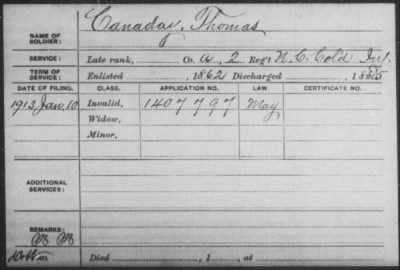 NAME OF SOLDIER: Canaday, Thomas
SERVICE: Late rank, Co. A, 2 Reg't N.C. Cold Inf.
TERM OF SERVICE: Enlisted , 1862 Discharged , 1865
DATE OF FILING. CLASS. APPLICATION NO. LAW. CERTIFICATE NO.
1913 Jan. 10 Invalid, 1407797 May
Widow,
Minor,
ADDITIONAL SERVICES:
REMARKS:
Died , 1 , at